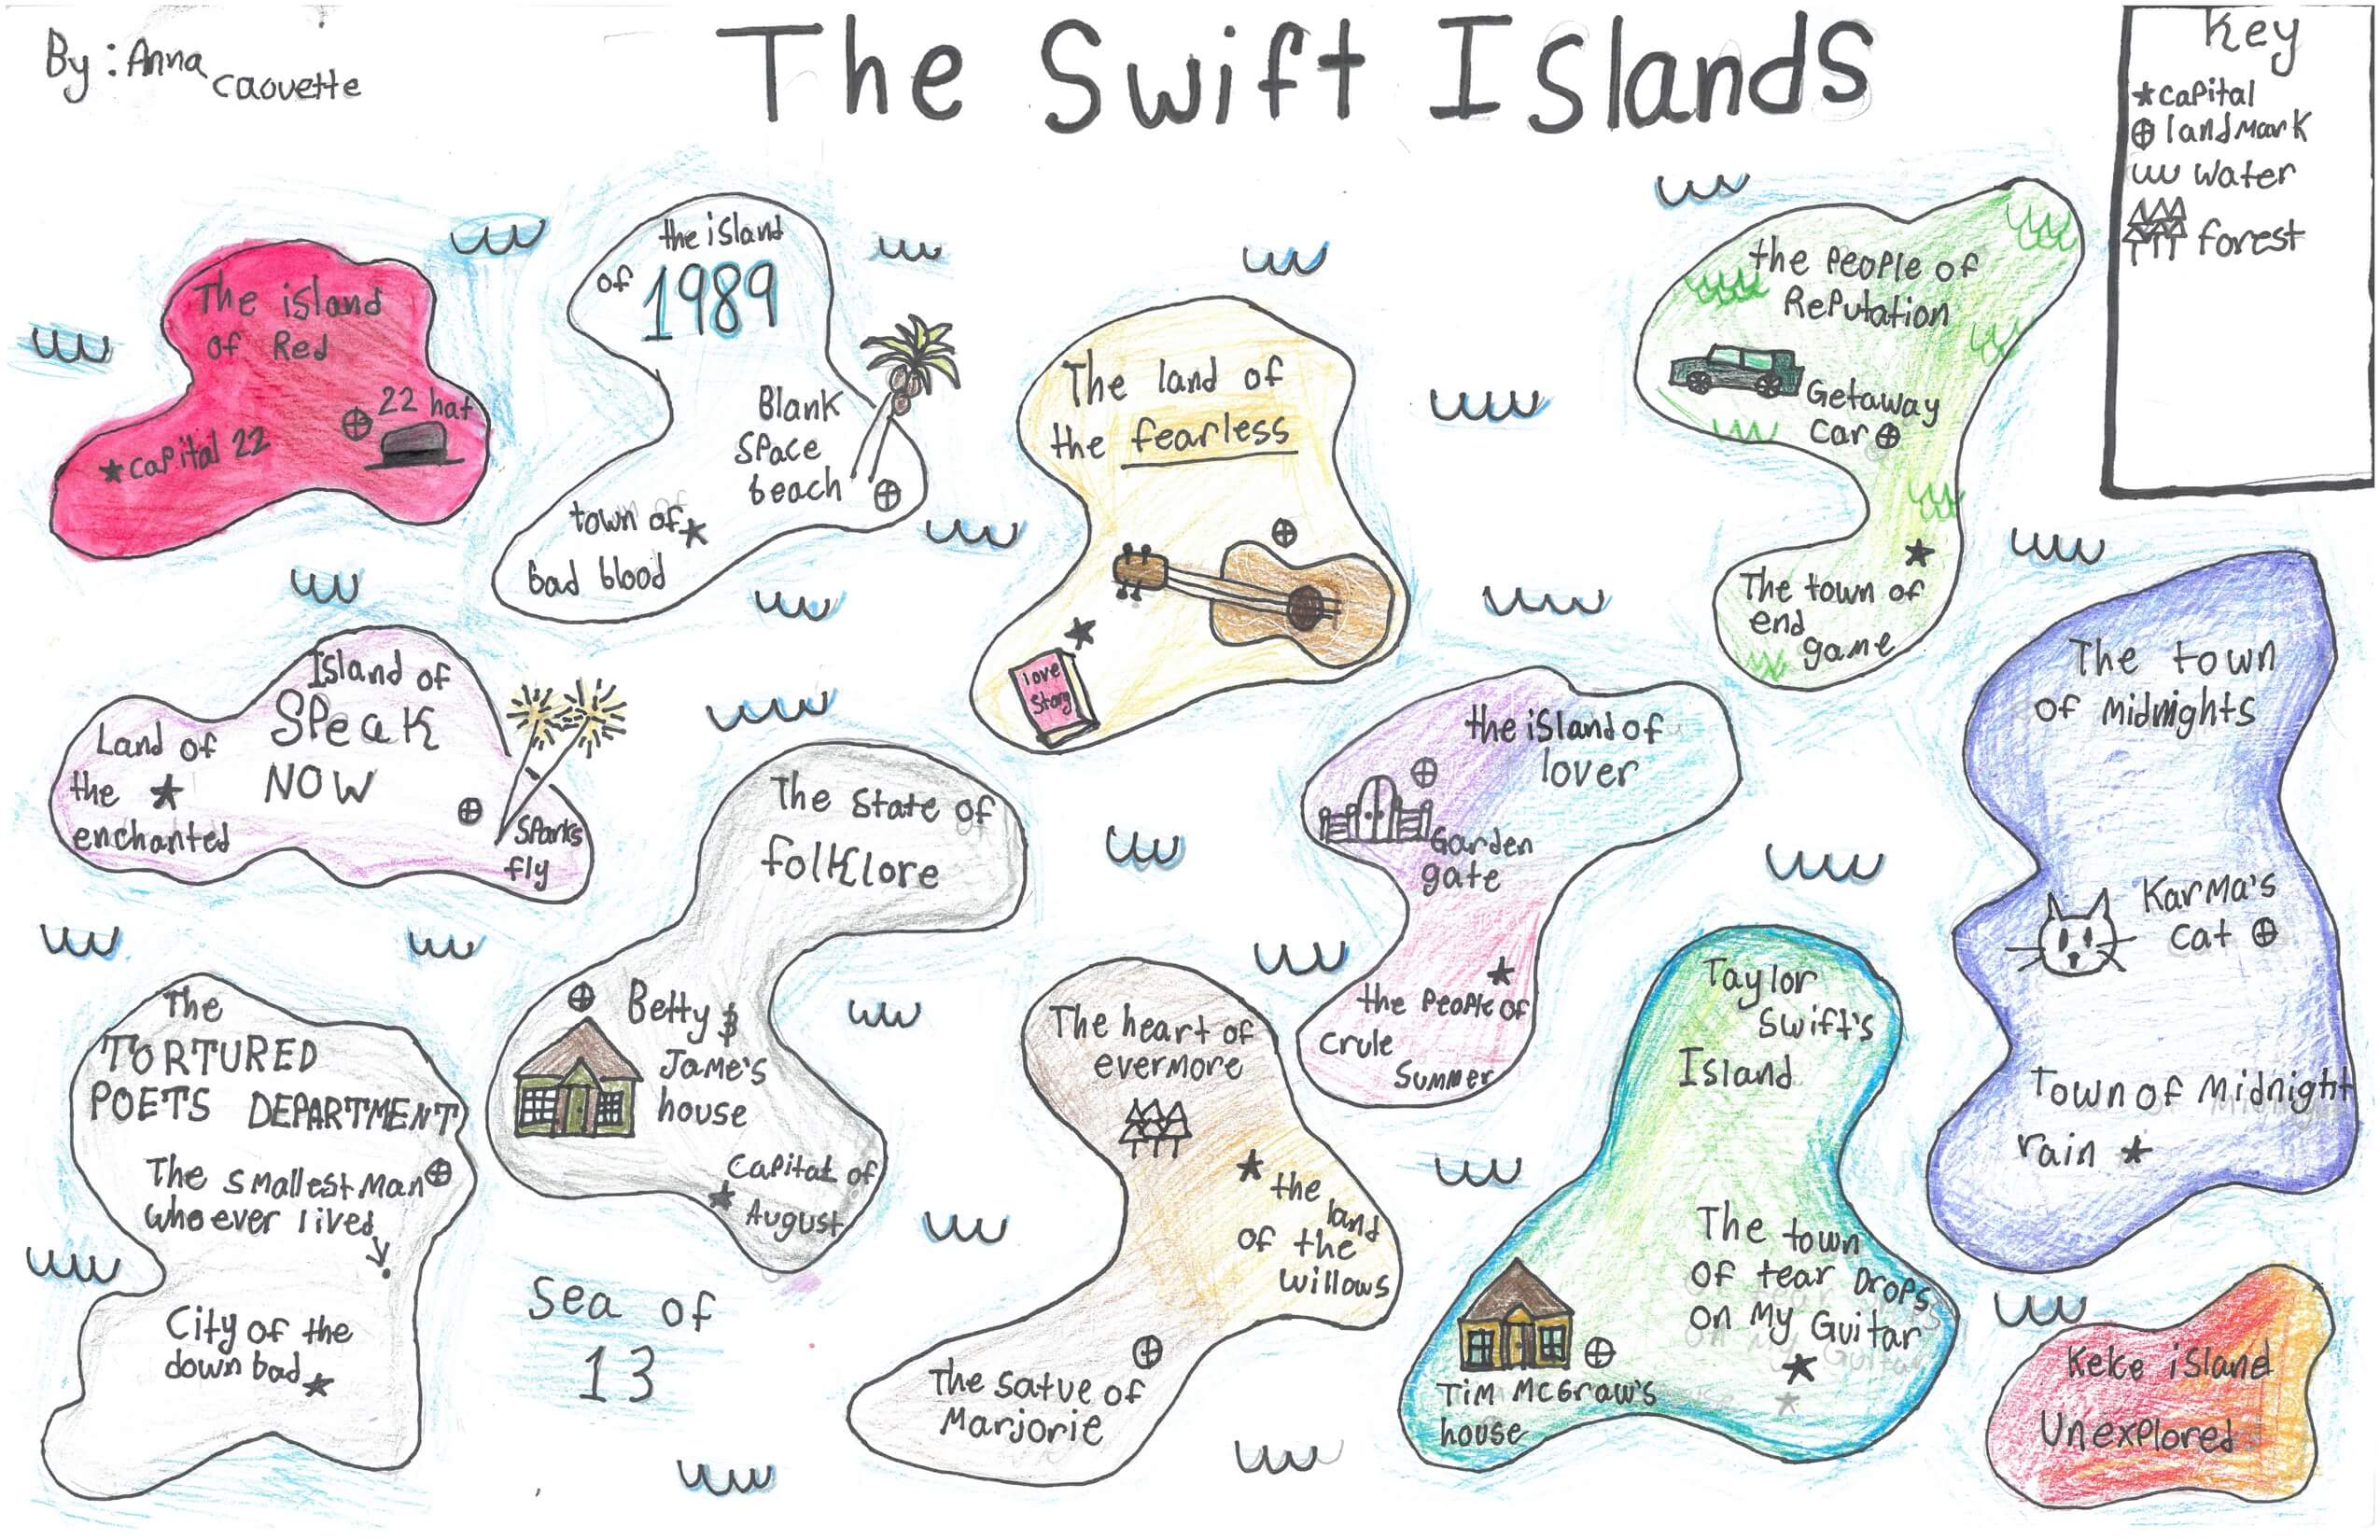 By: Anna
Caouette
The Swift Islands
Key
capital
landmark
water
forest
The island
of Red
22 hat
capital 22
the island
of 1989
Blank
space
beach
town of
bad blood
The land of
the fearless
love
story
the people of
Reputation
Getaway
car
The town of
end
game
Island of
Speak
NOW
Land of
the
enchanted
Sparks
fly
The state of
folklore
Betty &
Jame's
house
Capital of
August
the island of
lover
Garden
gate
the people of
crule
summer
The town
of midnights
Karma's
cat
Town of Midnight
rain
The
TORTURED
POETS DEPARTMENT
The smallest man
who ever lived
City of the
down bad
Sea of
13
The heart of
evermore
the
land
of the
willows
The satue of
Marjorie
Taylor
Swift's
Island
The town
of tear Drops
on My Guitar
Tim McGraw's
house
Keke island
Unexplored